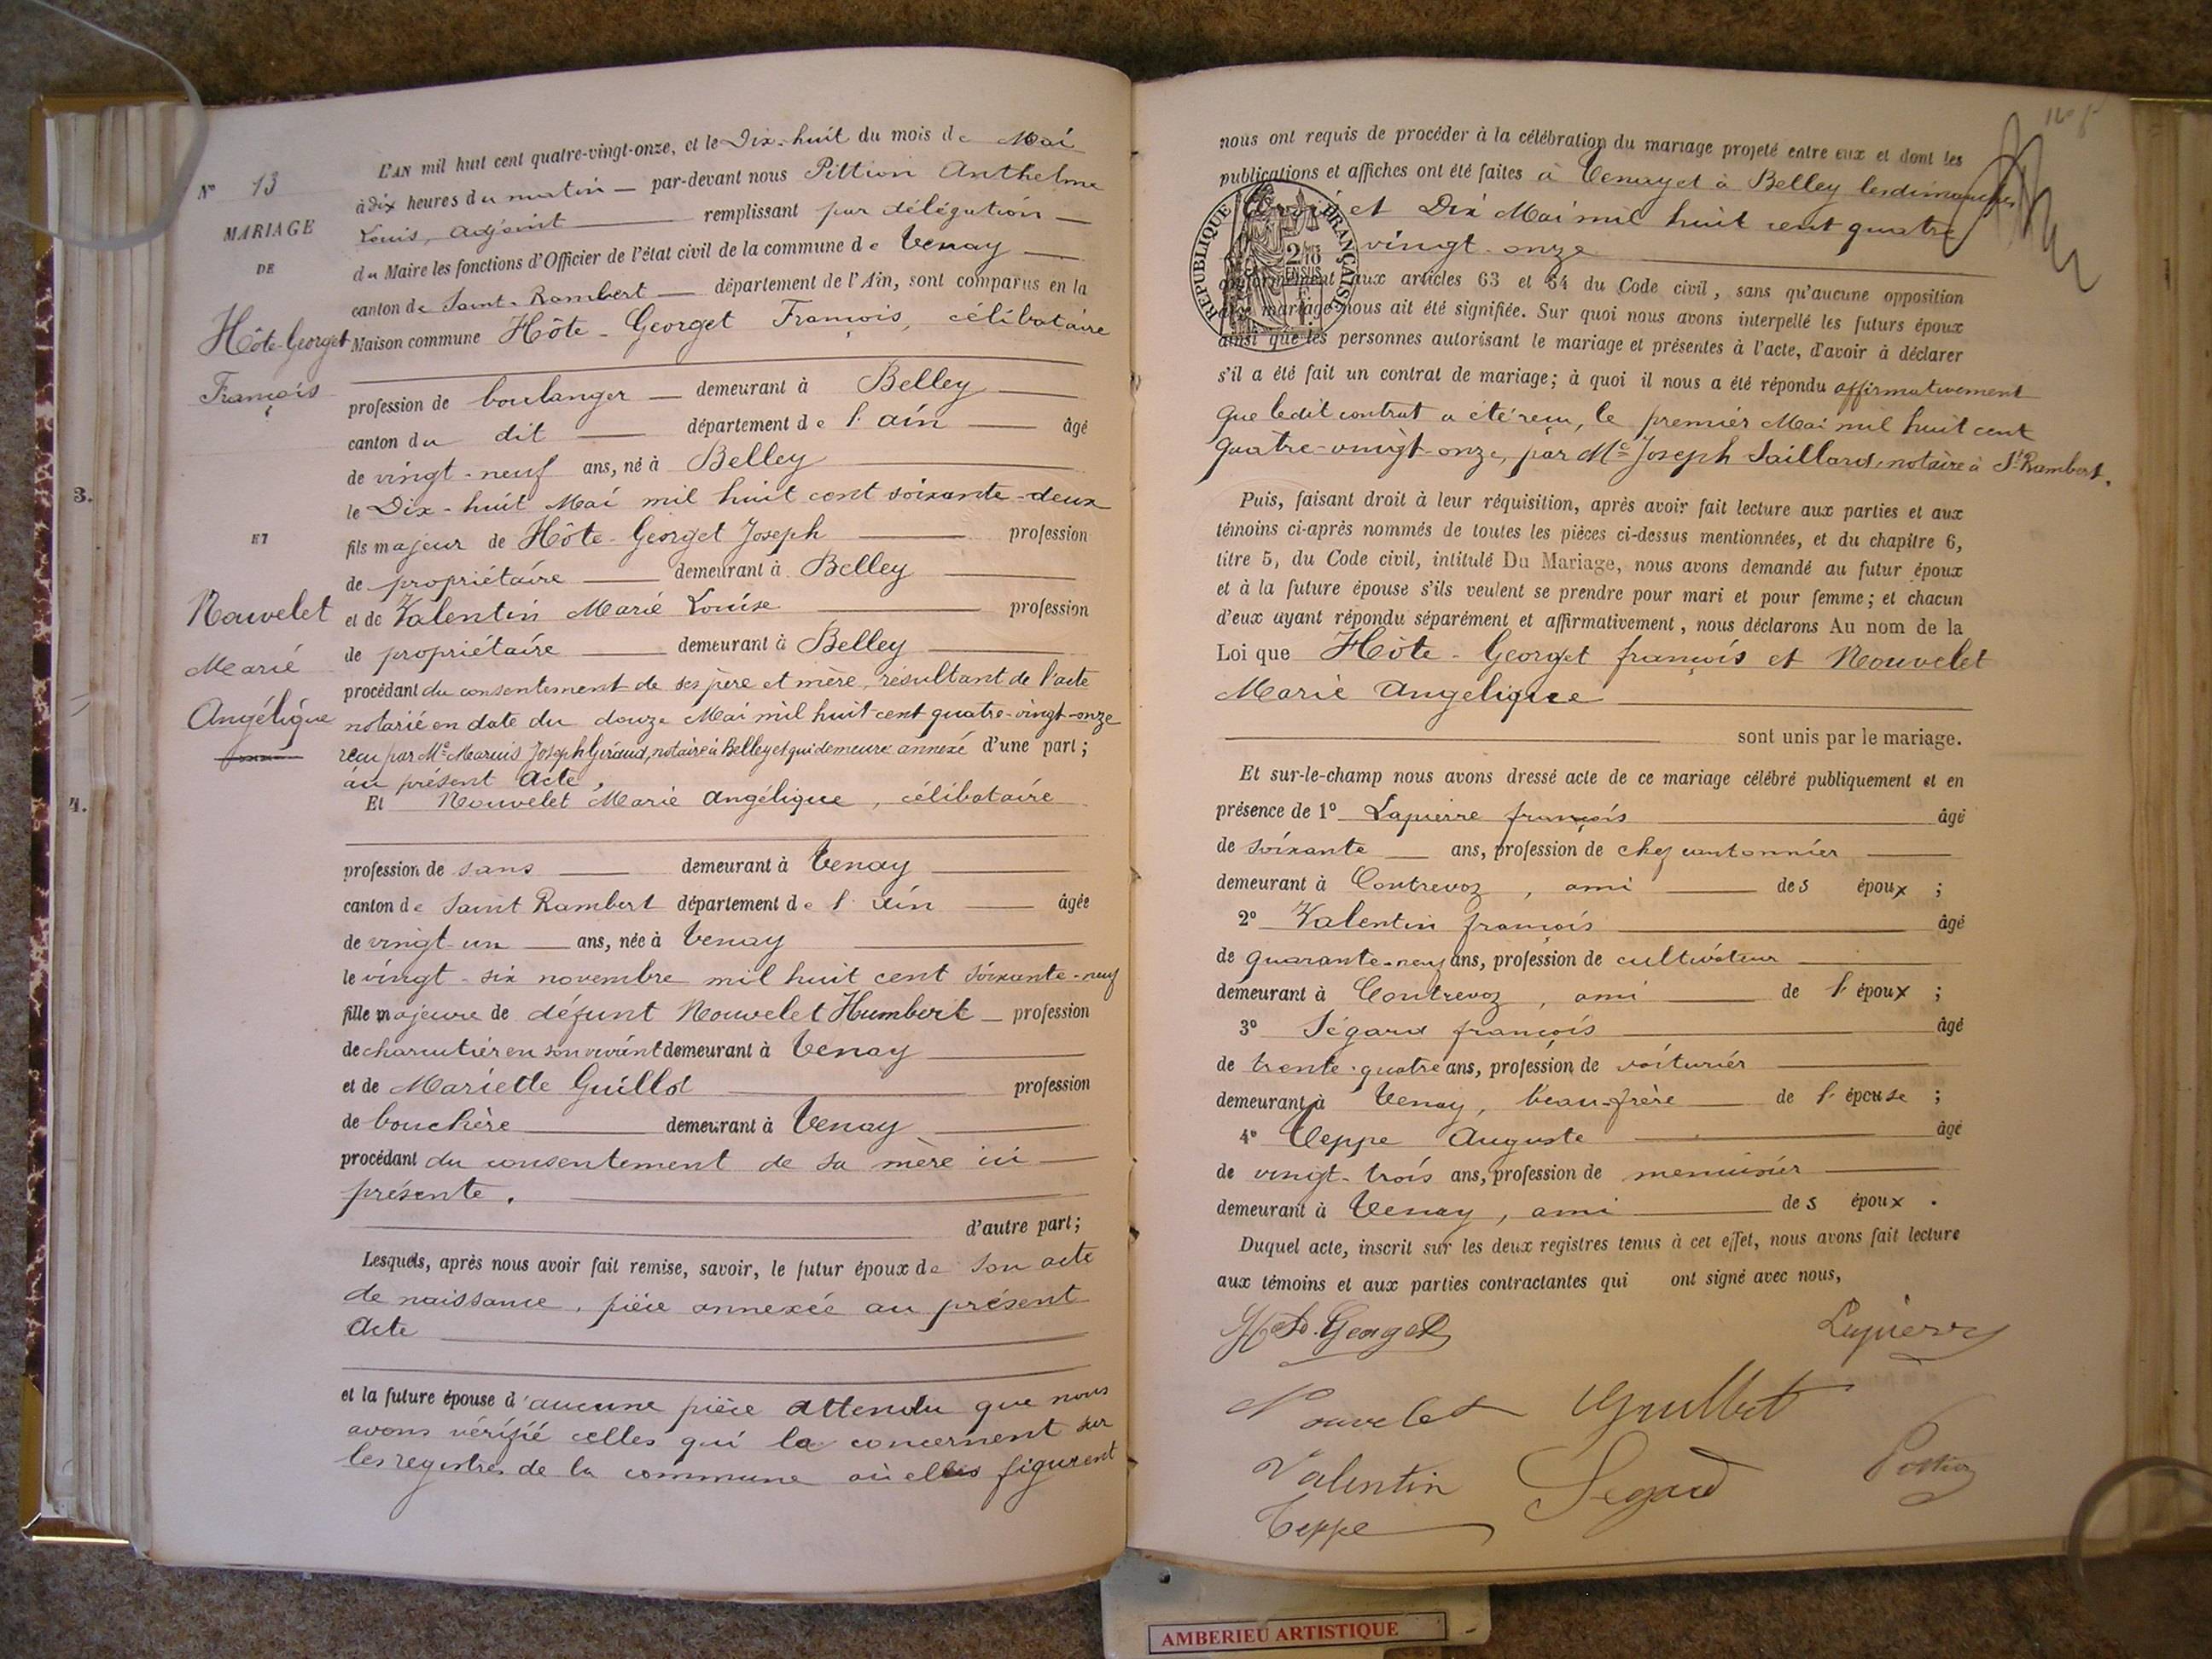 N° 13
MARIAGE
DE
Hôte-Georget
François
ET
Nouvelet
Marie
Angélique
3.
4.
L'AN mil huit cent quatre-vingt-onze, et le Dix-huit du mois de Mai
à dix heures du matin par-devant nous Pittion Anthelme
Louis, adjoint remplissant par délégation
du Maire les fonctions d'Officier de l'état civil de la commune de Tenay
canton de Saint-Rambert département de l'Ain, sont comparus en la
Maison commune Hôte-Georget François, célibataire
profession de boulanger demeurant à Belley
canton du dit département de l'ain âgé
de vingt-neuf ans, né à Belley
le Dix-huit Mai mil huit cent soixante-deux
fils majeur de Hôte-Georget Joseph profession
de propriétaire demeurant à Belley
et de Valentin Marie Louise profession
de propriétaire demeurant à Belley
procédant du consentement de ses père et mère, résultant de l'acte
notarié en date du douze Mai mil huit cent quatre-vingt-onze
reçu par Me Marius Joseph Giraud, notaire à Belley et qui demeure annexé d'une part;
au présent acte,
Et Nouvelet Marie Angélique, célibataire
profession de sans demeurant à Tenay
canton de Saint Rambert département de l'Ain âgée
de vingt-un ans, née à Tenay
le vingt-six novembre mil huit cent soixante-neuf
fille majeure de défunt Nouvelet Humbert profession
de charcutier en son vivant demeurant à Tenay
et de Mariette Guillot profession
de bouchère demeurant à Tenay
procédant du consentement de sa mère ici
présente.
d'autre part;
Lesquels, après nous avoir fait remise, savoir, le futur époux de son acte
de naissance, pièce annexée au présent
acte
et la future épouse d'aucune pièce attendu que nous
avons vérifié celles qui la concernent sur
les registres de la commune où elles figurent
nous ont requis de procéder à la célébration du mariage projeté entre eux et dont les
publications et affiches ont été faites à Tenay et à Belley les dimanches
trois et Dix Mai mil huit cent quatre
vingt-onze
conformément aux articles 63 et 64 du Code civil, sans qu'aucune opposition
mariage nous ait été signifiée. Sur quoi nous avons interpellé les futurs époux
ainsi que les personnes autorisant le mariage et présentes à l'acte, d'avoir à déclarer
s'il a été fait un contrat de mariage; à quoi il nous a été répondu affirmativement
que ledit contrat a été reçu, le premier Mai mil huit cent
quatre-vingt-onze, par Me Joseph Saillard, notaire à St Rambert.
RÉPUBLIQUE FRANÇAISE
2/10
EN SUS
Puis, faisant droit à leur réquisition, après avoir fait lecture aux parties et aux
témoins ci-après nommés de toutes les pièces ci-dessus mentionnées, et du chapitre 6,
titre 5, du Code civil, intitulé Du Mariage, nous avons demandé au futur époux
et à la future épouse s'ils veulent se prendre pour mari et pour femme; et chacun
d'eux ayant répondu séparément et affirmativement, nous déclarons Au nom de la
Loi que Hôte-Georget françois et Nouvelet
Marie Angelique
sont unis par le mariage.
Et sur-le-champ nous avons dressé acte de ce mariage célébré publiquement et en
présence de 1° Lapierre françois âgé
de soixante ans, profession de chef cantonnier
demeurant à Contrevoz, ami des époux ;
2° Valentin françois âgé
de quarante-neuf ans, profession de cultivateur
demeurant à Contrevoz, ami de l'époux ;
3° Ségard françois âgé
de trente-quatre ans, profession de voiturier
demeurant à Tenay, beau-frère de l'épouse ;
4° Teppe Auguste âgé
de vingt-trois ans, profession de menuisier
demeurant à Tenay, ami des époux .
Duquel acte, inscrit sur les deux registres tenus à cet effet, nous avons fait lecture
aux témoins et aux parties contractantes qui ont signé avec nous,
Georget Lapierre
Nouvelet Guillot
Valentin Segard Pittion
Teppe
AMBERIEU ARTISTIQUE